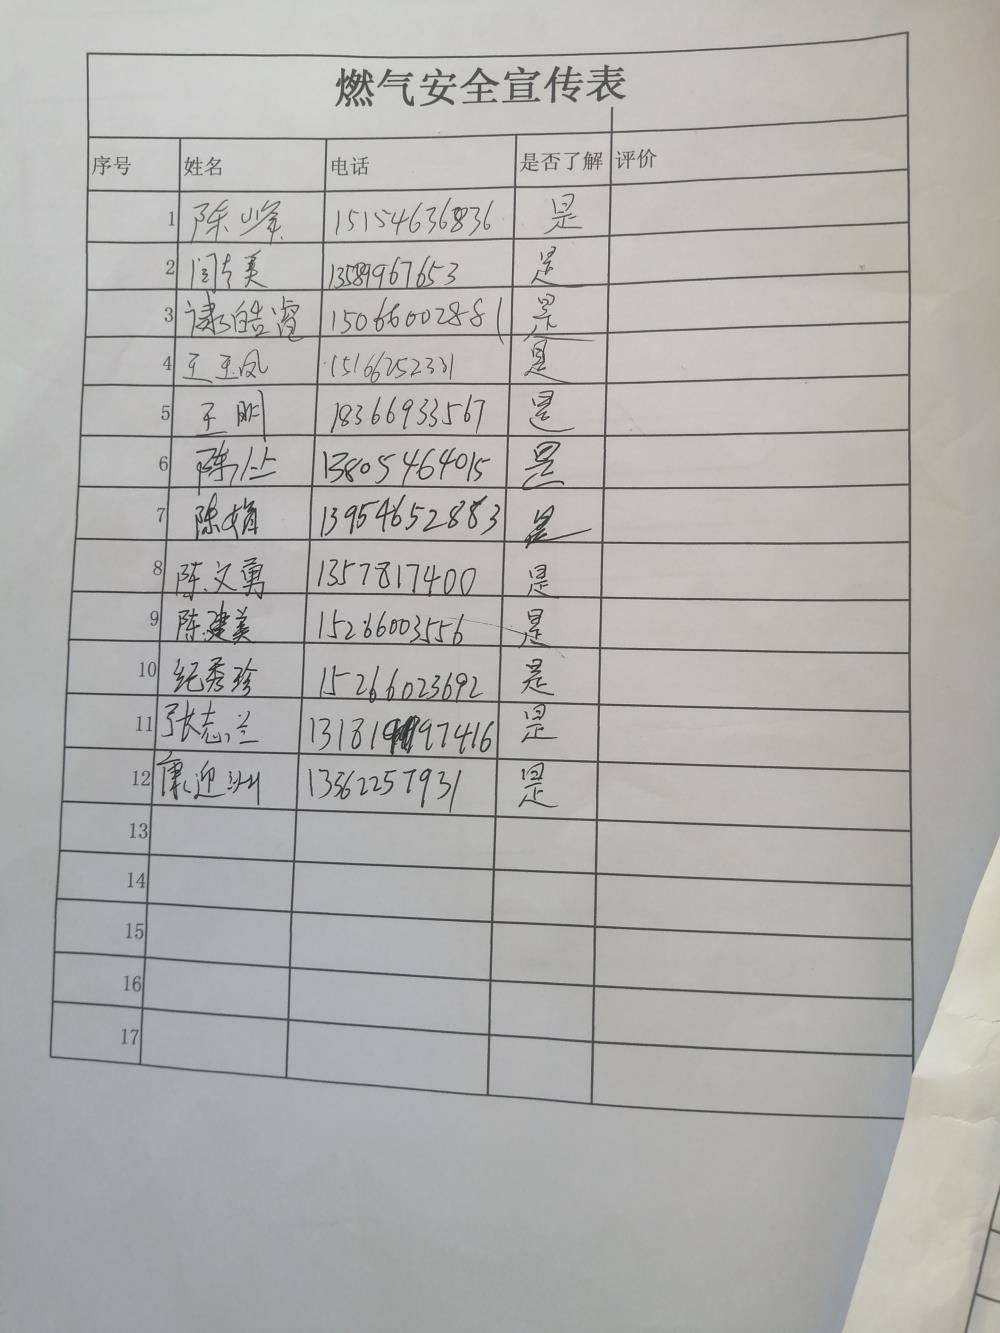 燃气安全宣传表
序号 姓名 电话 是否了解 评价
1 陈峰 15154636836 是
2 闫专美 13589967653 是
3 皓睿 15066002881 是
4 王玉凤 是
5 王刚 18366933567 是
6 陈 13805464015 是
7 陈娟 13954652883 是
8 陈文勇 1357817400 是
9 陈建美 15266003556 是
10 纪秀珍 15266023692 是
11 张志兰 是
12 康迎洲 13562257931 是
13
14
15
16
17